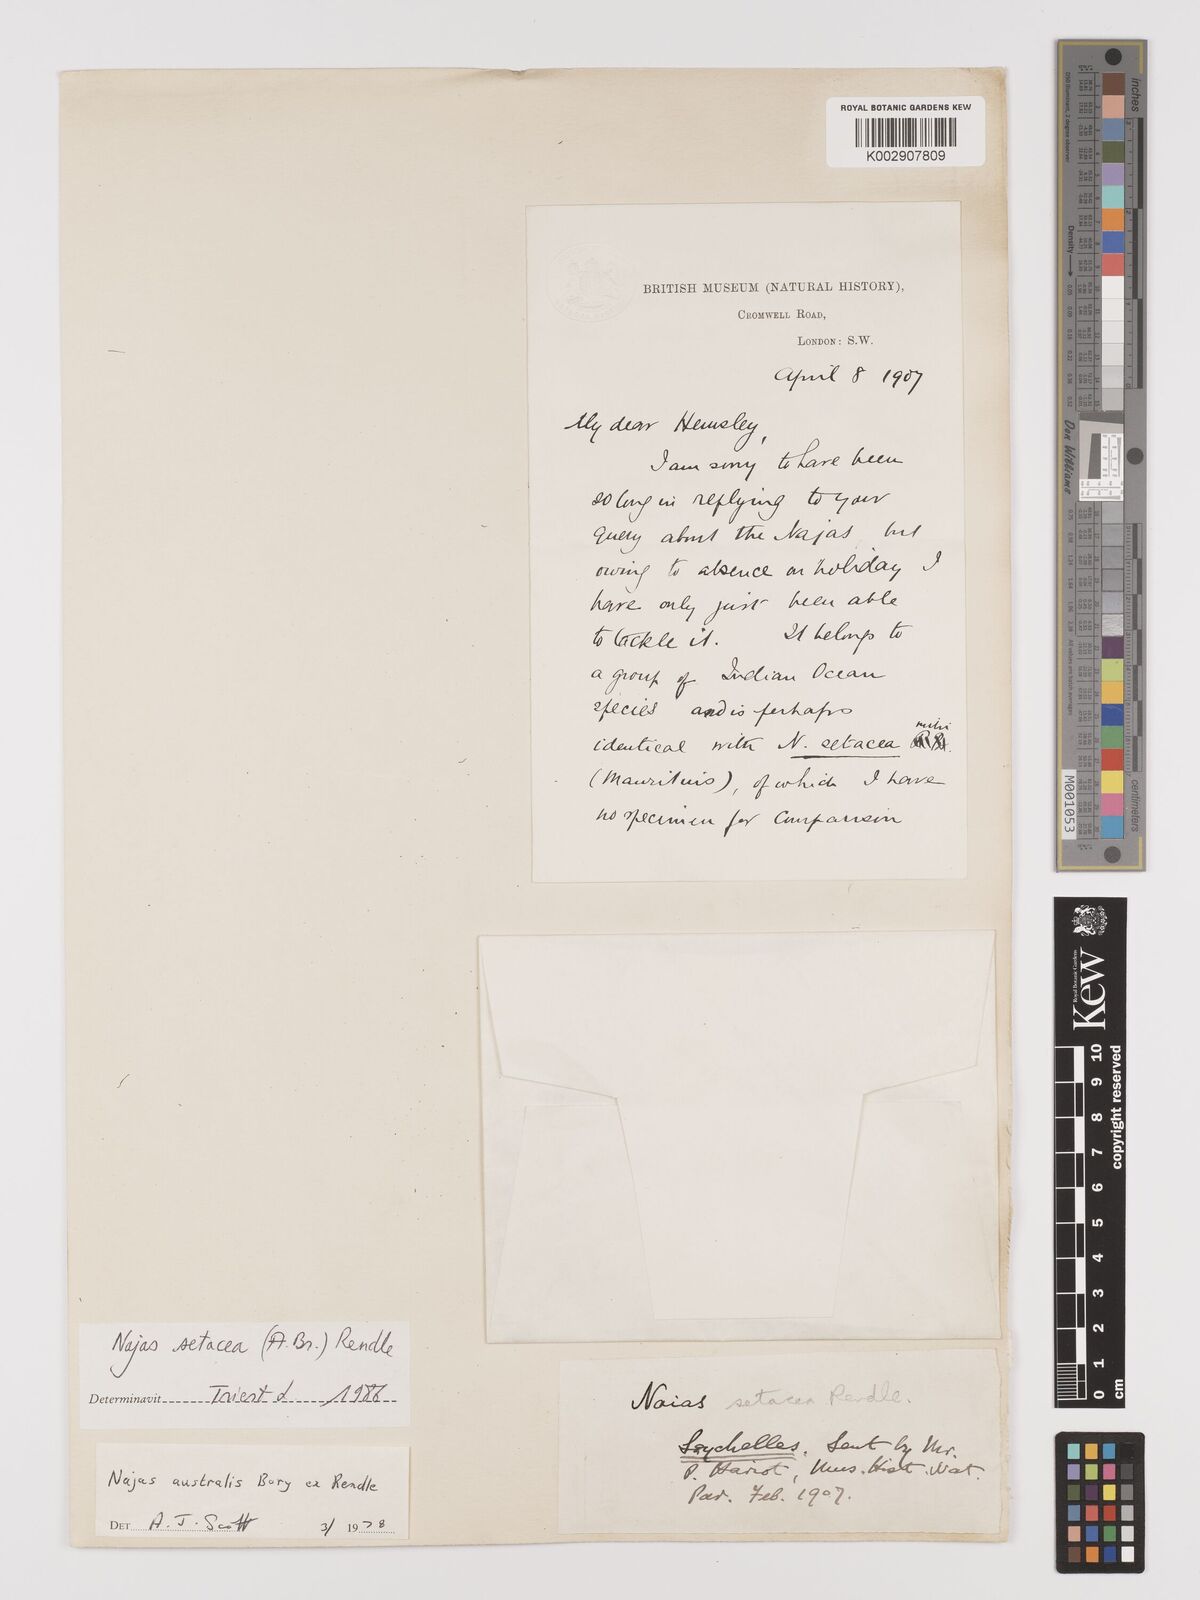 ROYAL BOTANIC GARDENS KEW
K002907809
BRITISH MUSEUM (NATURAL HISTORY),
CROMWELL ROAD,
LONDON: S.W.
April 8 1907
My dear Hemsley,
I am sorry to have been
so long in replying to your
query about the Najas but
owing to absence on holiday I
have only just been able
to tackle it. It belongs to
a group of Indian Ocean
species and is perhaps
identical with N. setacea mihi
(Mauritius), of which I have
no specimen for comparison
Najas setacea (A.Br.) Rendle
Determinavit Triest L 1986
Najas australis Bory ex Rendle
DET A. J. Scott 3/ 1978
Naias setacea Rendle.
Seychelles. Sent by Mr.
P. Hariot, Mus. Hist. Nat.
Par. Feb. 1907.
inches
centimeters
Density
Don Williams
M001053
Royal Botanic Gardens
Kew
copyright reserved
0 1 2 3 4 5 6 7 8 9 10
cm